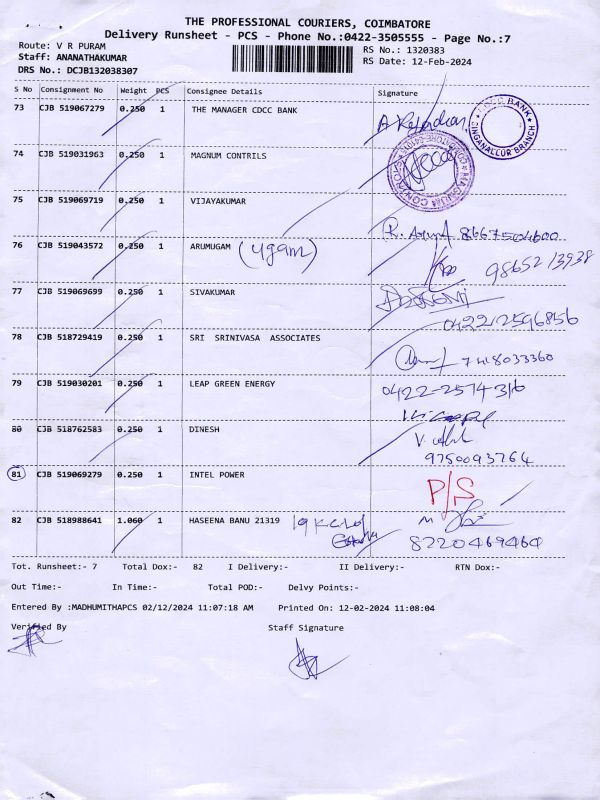 THE PROFESSIONAL COURIERS, COIMBATORE
Delivery Runsheet - PCS - Phone No.:0422-3505555 - Page No.:7
Route: V R PURAM
RS No.: 1320383
Staff: ANANATHAKUMAR
RS Date: 12-Feb-2024
DRS No.: DCJB132038307
S No Consignment No Weight PCS Consignee Details Signature
73 CJB 519067279 0.250 1 THE MANAGER CDCC BANK
CDCC BANK SINGANALLUR BRANCH
74 CJB 519031963 0.250 1 MAGNUM CONTRILS
75 CJB 519069719 0.250 1 VIJAYAKUMAR
8667504600
76 CJB 519043572 0.250 1 ARUMUGAM (ugam)
98652 13938
77 CJB 519069699 0.250 1 SIVAKUMAR
0422 2596856
78 CJB 518729419 0.250 1 SRI SRINIVASA ASSOCIATES
7418033360
79 CJB 519030201 0.250 1 LEAP GREEN ENERGY 0422-2574316
80 CJB 518762583 0.250 1 DINESH
9750093764
81 CJB 519069279 0.250 1 INTEL POWER P/S
82 CJB 518988641 1.060 1 HASEENA BANU 21319
8220469464
Tot. Runsheet:- 7 Total Dox:- 82 I Delivery:- II Delivery:- RTN Dox:-
Out Time:- In Time:- Total POD:- Delvy Points:-
Entered By :MADHUMITHAPCS 02/12/2024 11:07:18 AM Printed On: 12-02-2024 11:08:04
Verified By Staff Signature